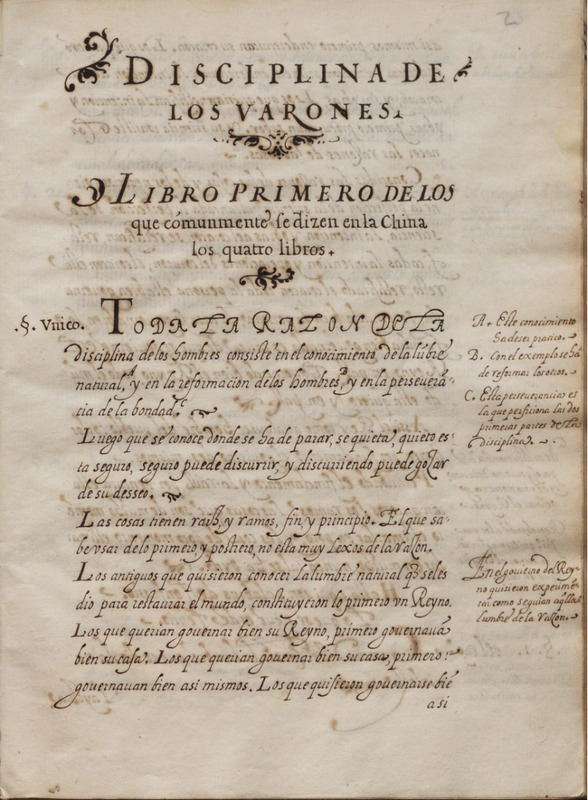 2
DISCIPLINA DE
LOS VARONES.
Y LIBRO PRIMERO DE LOS
que cómunmente se dizen en la China
los quatro libros.
.§. Vnico.
TODA LA RAZON DE LA
disciplina de los hombres consiste en el conocimiento, de la lũbre
natural,A y en la reformacion de los hombres,B y en la perseverã-
cia de la bondad.C
Luego que se conoce donde se ha de parar, se quieta, quieto es-
ta seguro, seguro puede discurrir, y discurriendo puede gozar
de su desseo.
Las cosas tienen raiz, y ramos, fin y principio. El que sa-
be vsar de lo primero, y postrero, no esta muy lexos de la razon.
Los antiguos que quisieron conocer la lumbre natural q̃ se les
dio para restaurar el mundo, constituyeron lo primero vn Reyno.
Los que querian governar bien su Reyno, primero governavã
bien su casa. Los que querian governar bien su casa, primero
governavan bien asi mismos. Los que quisieron governarse biẽ
a si
A. Este conocimiento
ha de ser pratico.
B. Con el exemplo se hã
de reformar los otros.
C. Esta perseverancia es
la que perficiona las dos
primeras partes de la
disciplina.
En el govierno del Rey-
no quisieron experimẽ-
tar como seguian aq̃lla
lumbre de la razon.